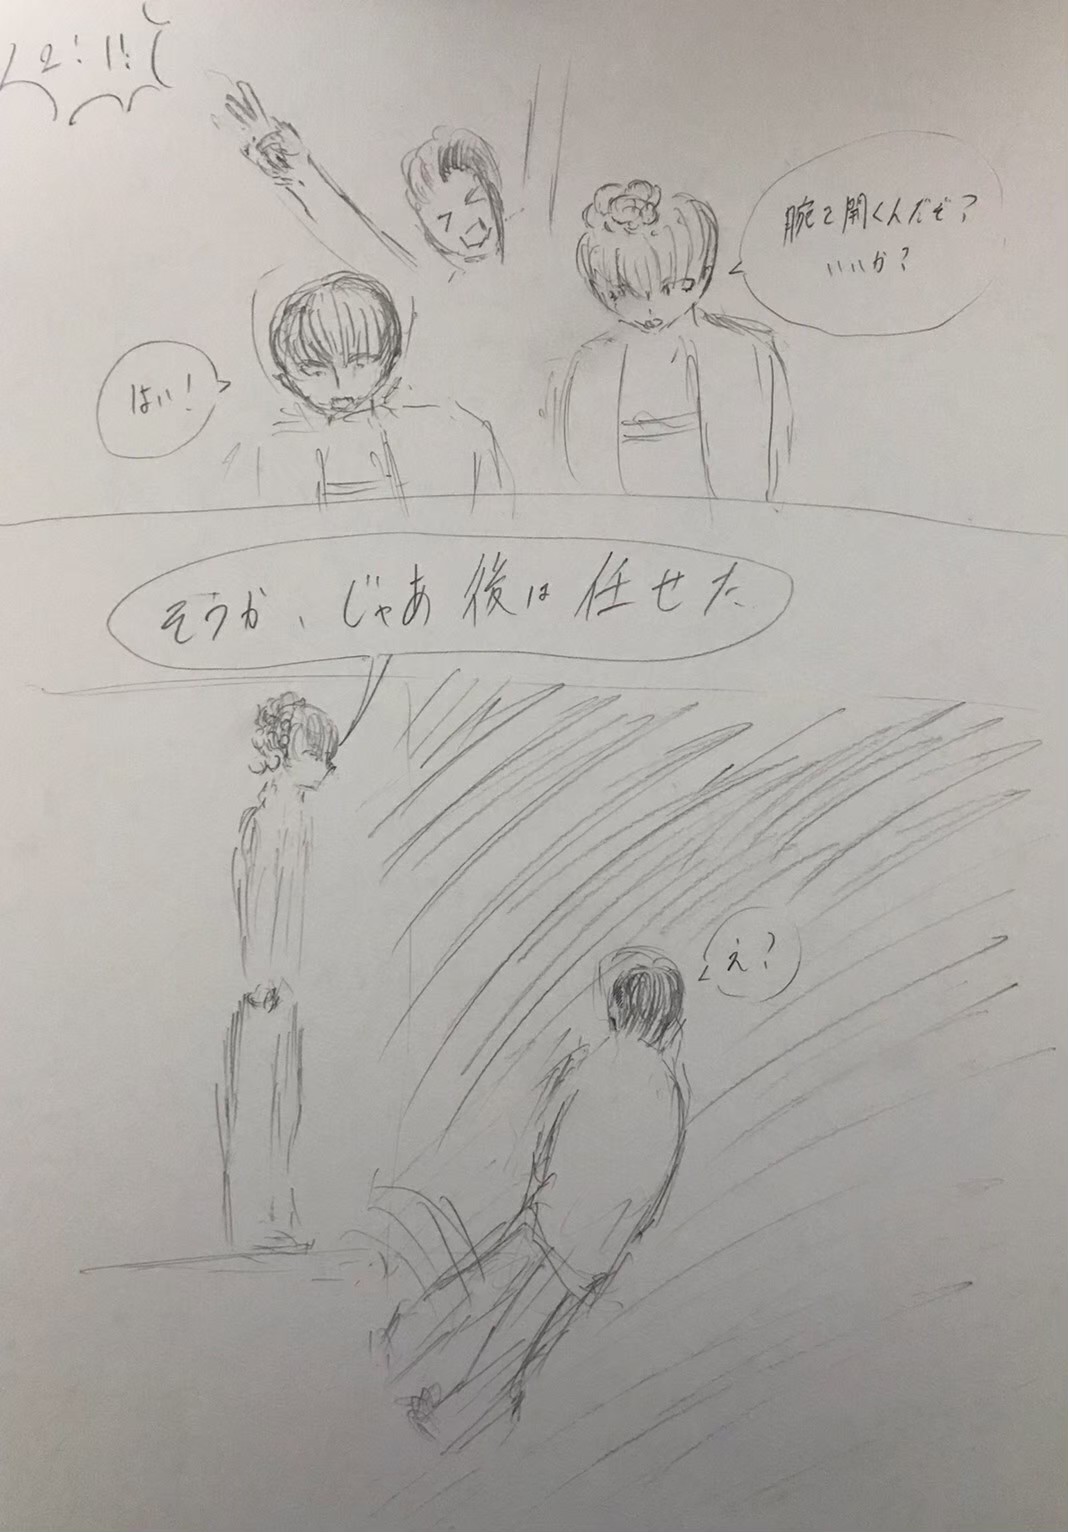 2! 1!!
腕を開くんだぞ?
いいか?
はい!
そうか、じゃあ後は任せた
え?